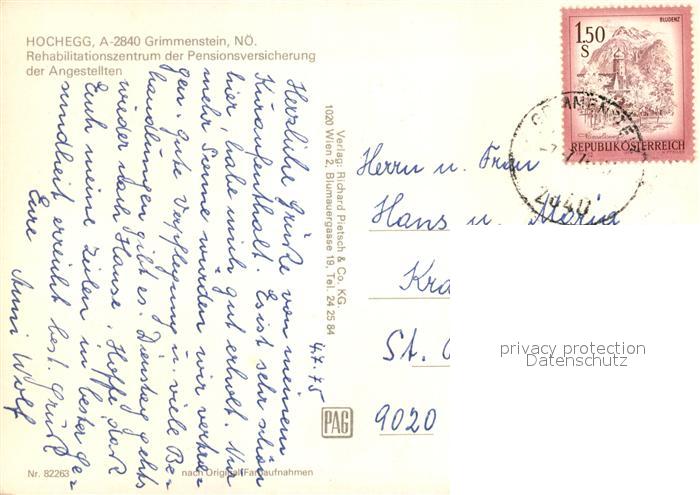 HOCHEGG, A-2840 Grimmenstein, NÖ.
Rehabilitationszentrum der Pensionsversicherung
der Angestellten
4.7.75
Herzliche Grüße von meinem
Kuraufenthalt. Es ist sehr schön
hier, habe mich gut erholt. Nur
mehr Sonne würden wir vertra-
gen. Gute Verpflegung u. viele Be-
handlungen gibt es. Dienstag gehts
wieder nach Hause. Hoffe, daß
Euch meine Zeilen in bester Ge-
sundheit erreicht. Best. Grüße
Eure Anni Wolf
Verlag: Richard Pietsch & Co. KG.
1020 Wien 2, Blumauergasse 19, Tel. 24 25 84
PAG
Nr. 82263
nach Original-Farbaufnahmen
BLUDENZ
1.50
S
REPUBLIK ÖSTERREICH
2840
Herrn u. Frau
Hans u. Maria
Kra
St.
9020
privacy protection
Datenschutz